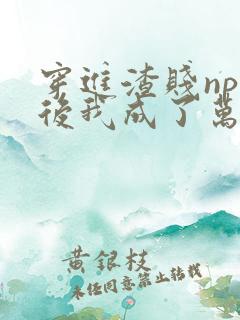 穿進渣賤np
後我成了萬
黃銀枝
未經同意禁止轉載